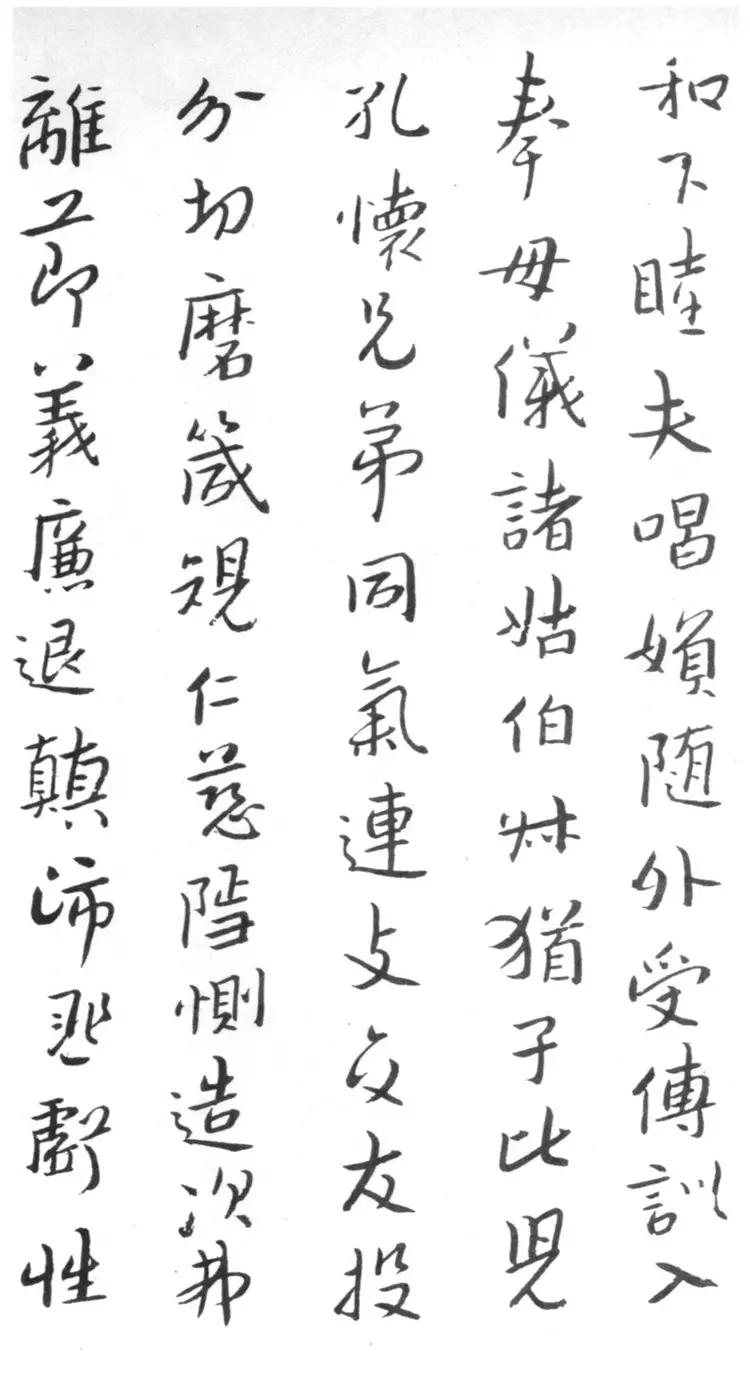 和下睦夫唱婦随外受傅訓入
奉母儀諸姑伯叔猶子比兒
孔懷兄弟同氣連支交友投
分切磨箴規仁慈隱惻造次弗
離節義廉退顛沛匪虧性